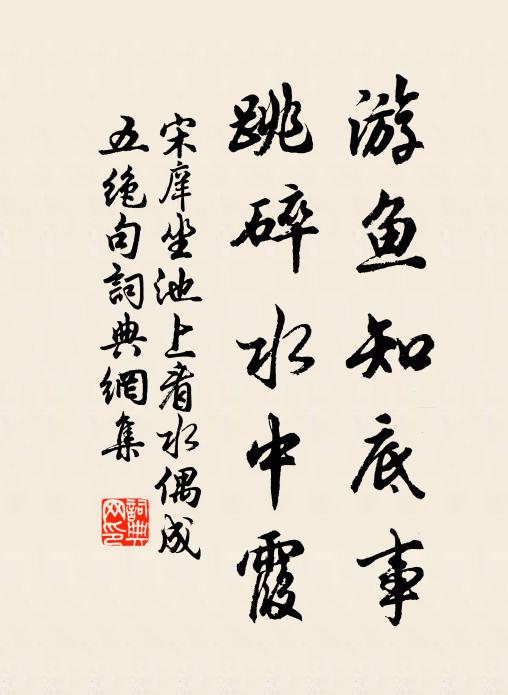 游鱼知底事
跳碎水中霞
宋庠坐池上看水偶成
五绝句詞典網集
詞典
网印